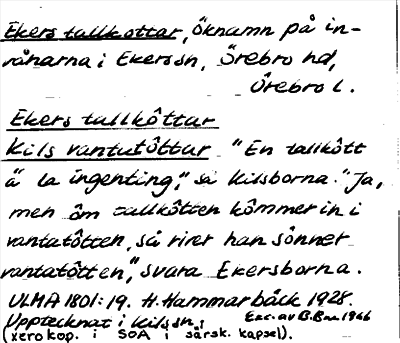 Ekers tallkottar, öknamn på in-
vånarna i Ekers sn, Örebro hd,
Örebro l.
Ekers tallkôttar
Kils vantatôttar "En tallkôtt
ä la ingenting," sa Kilsborna. "Ja,
men ôm tallkôtten kômmer in i
vantatôtten, så river han sônner
vantatôtten," svara Ekersborna.
ULMA 1801:19. H. Hammarbäck 1928.
Upptecknat i Kils sn, Exc. av B.
(xerokop. i SOA i särsk. kapsel).